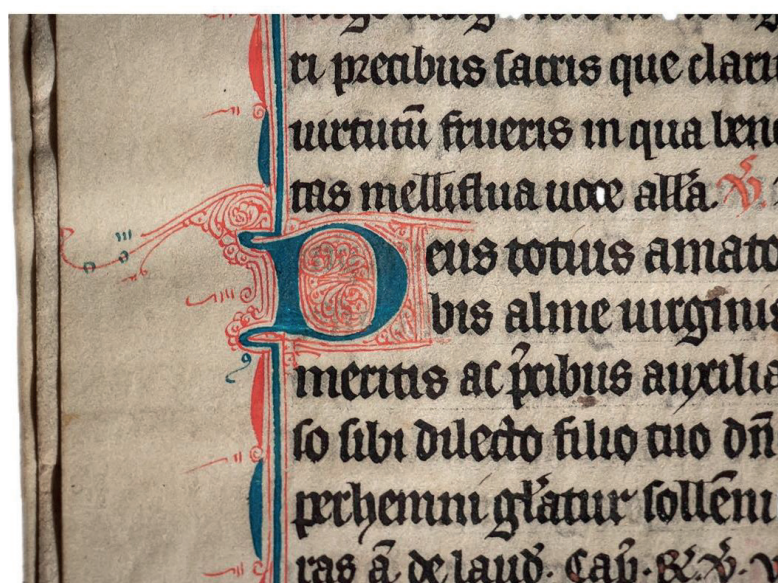 ri precibus sacris que clari
uirtutū frueris in qua beni
tas melliflua uoce allā. ℣
Deus totius amato
bis alme uirginis
meritis ac p̄cibus auxilia
so sibi dilecto filio tuo dn̄
perhenni gl̄atur sollēni
ras ā de laud̄. Cap̄. ℟. ℣.